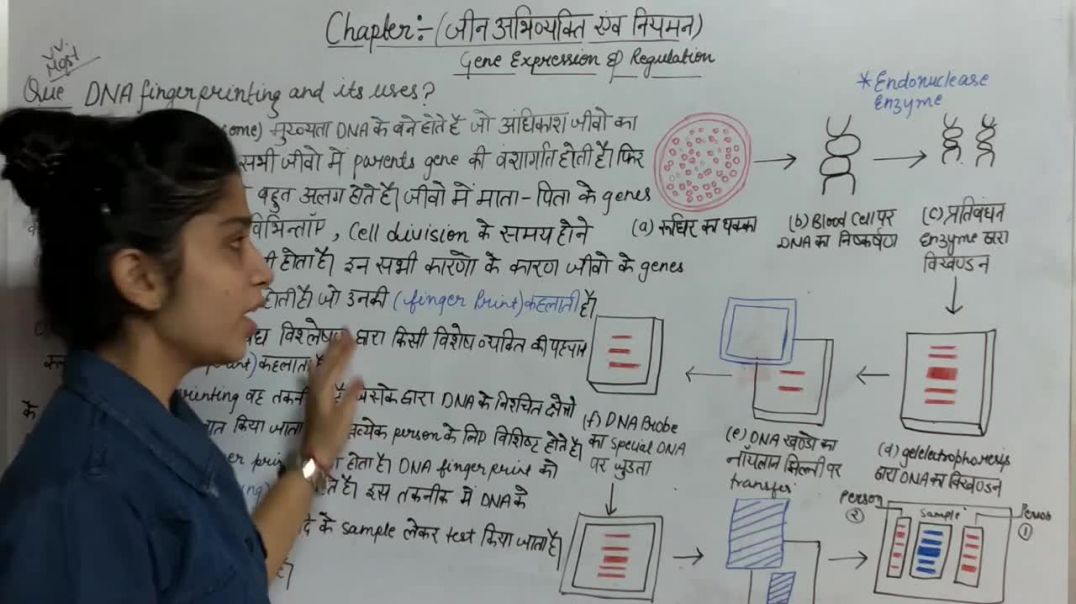 Chapter:- (जीन अभिव्यक्ति एंव नियमन)
Gene Expression & Regulation
VV. Mgst
Que DNA fingerprinting and its uses?
ome) मुख्यता DNA के बने होते है जो अधिकांश जीवो का
सभी जीवो में parents gene की वंशागति होती है। फिर
बहुत अलग होते है। जीवो में माता-पिता के genes
, cell division के समय होने
ती होता है। इन सभी कारणो के कारण जीवो के genes
होती है। जो उनकी (finger Print) कहलाती है।
विश्लेषण द्वारा किसी विशेष व्यक्ति की पहचान
कहलाता
rinting वह तकनी के द्वारा DNA के निश्चित क्षेत्रो
के किया जाता प्रत्येक person के लिए विशिष्ट होते है
होता है। DNA finger print को
है। इस तकनीक में DNA के
के sample लेकर test किया जाता है।
*Endonuclease
Enzyme
(a) रुधिर का धक्का
(b) Blood Cell पर
DNA का निष्कर्षण
(c) प्रतिबंधन
Enzyme द्वारा
विखण्डन
(d) gelelectrophoresis
द्वारा DNA का विखण्डन
(e) DNA खण्डो का
नॉयलान झिल्ली पर
transfer
(f) DNA Probe
का special DNA
पर जुडता
Person
②
Sample
Person
①